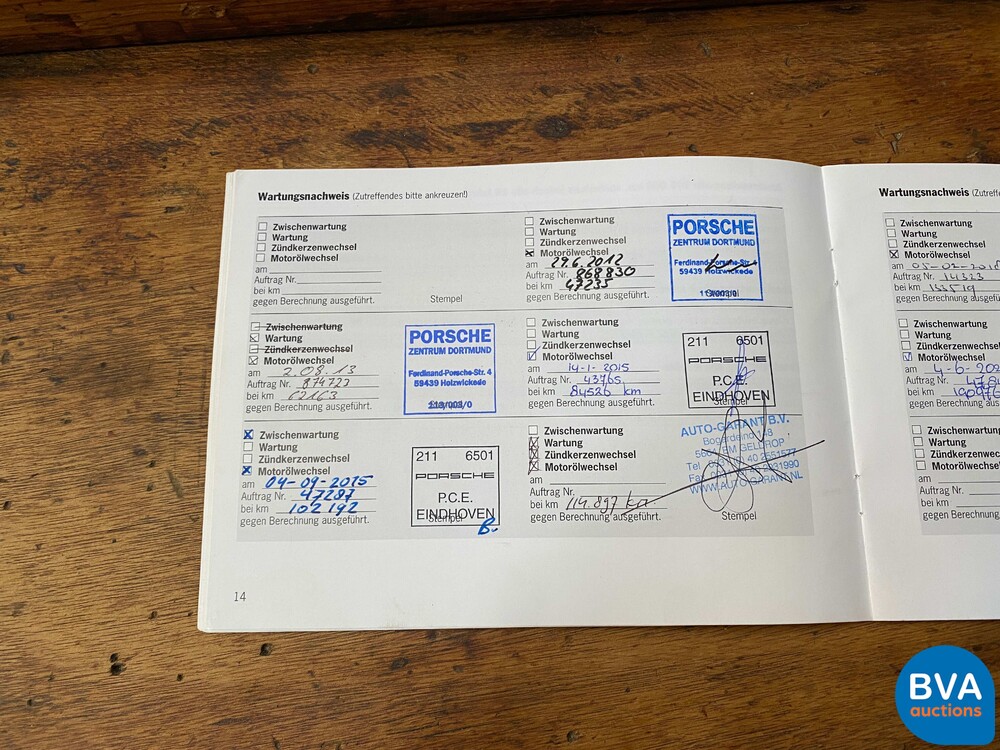 Wartungsnachweis (Zutreffendes bitte ankreuzen!)
Zwischenwartung
Wartung
Zündkerzenwechsel
Motorölwechsel
am
Auftrag Nr.
bei km
gegen Berechnung ausgeführt.
Stempel
Zwischenwartung
Wartung
Zündkerzenwechsel
Motorölwechsel
am 29.6.2012
Auftrag Nr. 868830
bei km 47235
gegen Berechnung ausgeführt.
Stempel
PORSCHE
ZENTRUM DORTMUND
Ferdinand-Porsche-Str. 4
59439 Holzwickede
Zwischenwartung
Wartung
Zündkerzenwechsel
Motorölwechsel
am 2.08.13
Auftrag Nr. 874723
bei km 62163
gegen Berechnung ausgeführt.
PORSCHE
ZENTRUM DORTMUND
Ferdinand-Porsche-Str. 4
59439 Holzwickede
Zwischenwartung
Wartung
Zündkerzenwechsel
Motorölwechsel
am 14-1-2015
Auftrag Nr. 43765
bei km 84526 km
gegen Berechnung ausgeführt.
Stempel
211 6501
PORSCHE
P.C.E.
EINDHOVEN
Zwischenwartung
Wartung
Zündkerzenwechsel
Motorölwechsel
am 04-09-2015
Auftrag Nr. 47287
bei km 102192
gegen Berechnung ausgeführt.
Stempel
211 6501
PORSCHE
P.C.E.
EINDHOVEN
Zwischenwartung
Wartung
Zündkerzenwechsel
Motorölwechsel
am
Auftrag Nr.
bei km 114.897 km
gegen Berechnung ausgeführt.
Stempel
AUTO-GARANT B.V.
Bogardeind
GELDROP
Tel
Fax
WWW.AUTO-GARANT.NL
14
Wartungsnachweis (Zutre
Zwischenwartung
Wartung
Zündkerzenwechsel
Motorölwechsel
am
Auftrag Nr. 14323
bei km
gegen Berechnung ausgefüh
Zwischenwartung
Wartung
Zündkerzenwechsel
Motorölwechsel
am 4-6-202
Auftrag Nr.
bei km
gegen Berechnung ausge
Zwischenwartung
Wartung
Zündkerzenwechse
Motorölwechsel
am
Auftrag Nr.
bei km
gegen Berechnung aus
BVA
auctions